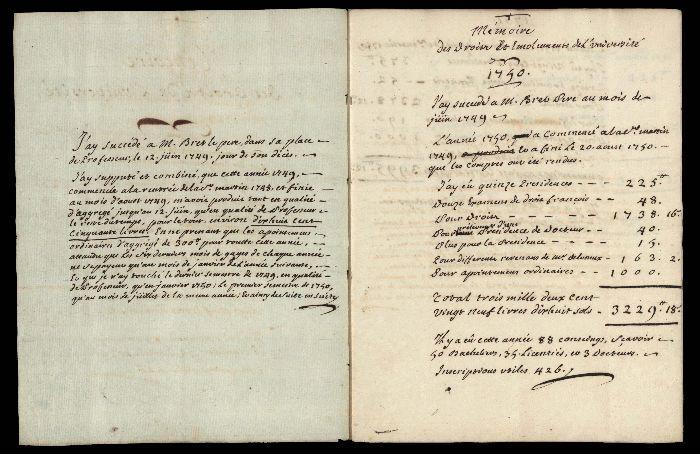 J'ay succedé a M. Bres le pere, dans sa place
de Professeur, le 12. juin 1749, jour de son décès.
J'ay supputé et combiné, que cette année 1749,
commencée a la rentrée de la St. martin 1748. et finie
au mois d'aoust 1749, m'a produit tant en qualité
d'aggrégé jusqu'au 12. juin, qu'en qualité de Professeur
le temps, pour le tout environ dixhuit cent
Cinquante livres. En ne prenant que les apointemens
ordinaires d'aggrégé de 300tt pour toutte cette année,
attendu que les six derniers mois de gages de chaque année
ne se payent qu'au mois de janvier de l'année suivante,
Et que je n'ay touché le dernier semestre de 1749, en qualité
de Professeur, qu'en janvier 1750; le premier semestre de 1750,
qu'au mois de juillet de la meme année; et ainsy de suite
Mémoire
des Droits Et Emolumens de l'université
1750.
J'ay succedé a M. Bres Pere au mois de
juin 1749
L'année 1750, a commencé a la St. martin
1749, et a fini Le 20. aoust 1750.
que les comptes ont été rendus.
J'ay eû quinze Presidences - - - 225tt
Douze Examens de droit françois - - 48.
Pour Droits - - - 1738. 16s
Pour Presidence de Docteur - - 40.
Plus pour la Presidence - - - 15.
Pour differents revenans de - 163. 2.
Pour apointemens ordinaires - - 1000.
Total trois mille deux cent
vingt neuf livres dixhuit sols - 3229tt 18s
Il y a eû cette année 88 conseings, scavoir
50 Bacheliers, 35 Licentiés, et 3 Docteurs.
Inscriptions utiles 426.